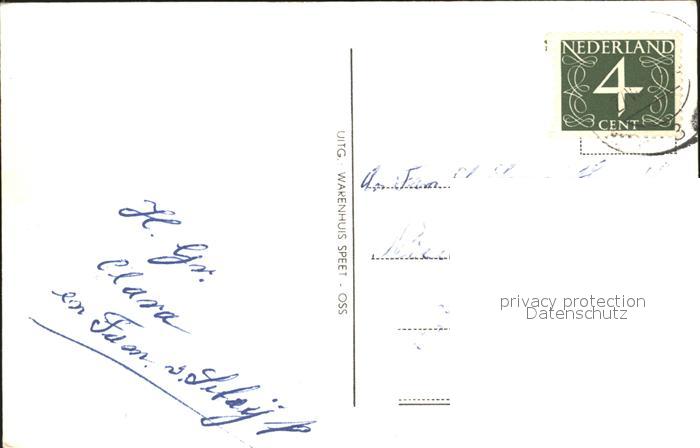 NEDERLAND
4
CENT
UITG.: WARENHUIS SPEET - OSS
H. Gr.
Clara
en Fam. v.
Fam
privacy protection
Datenschutz